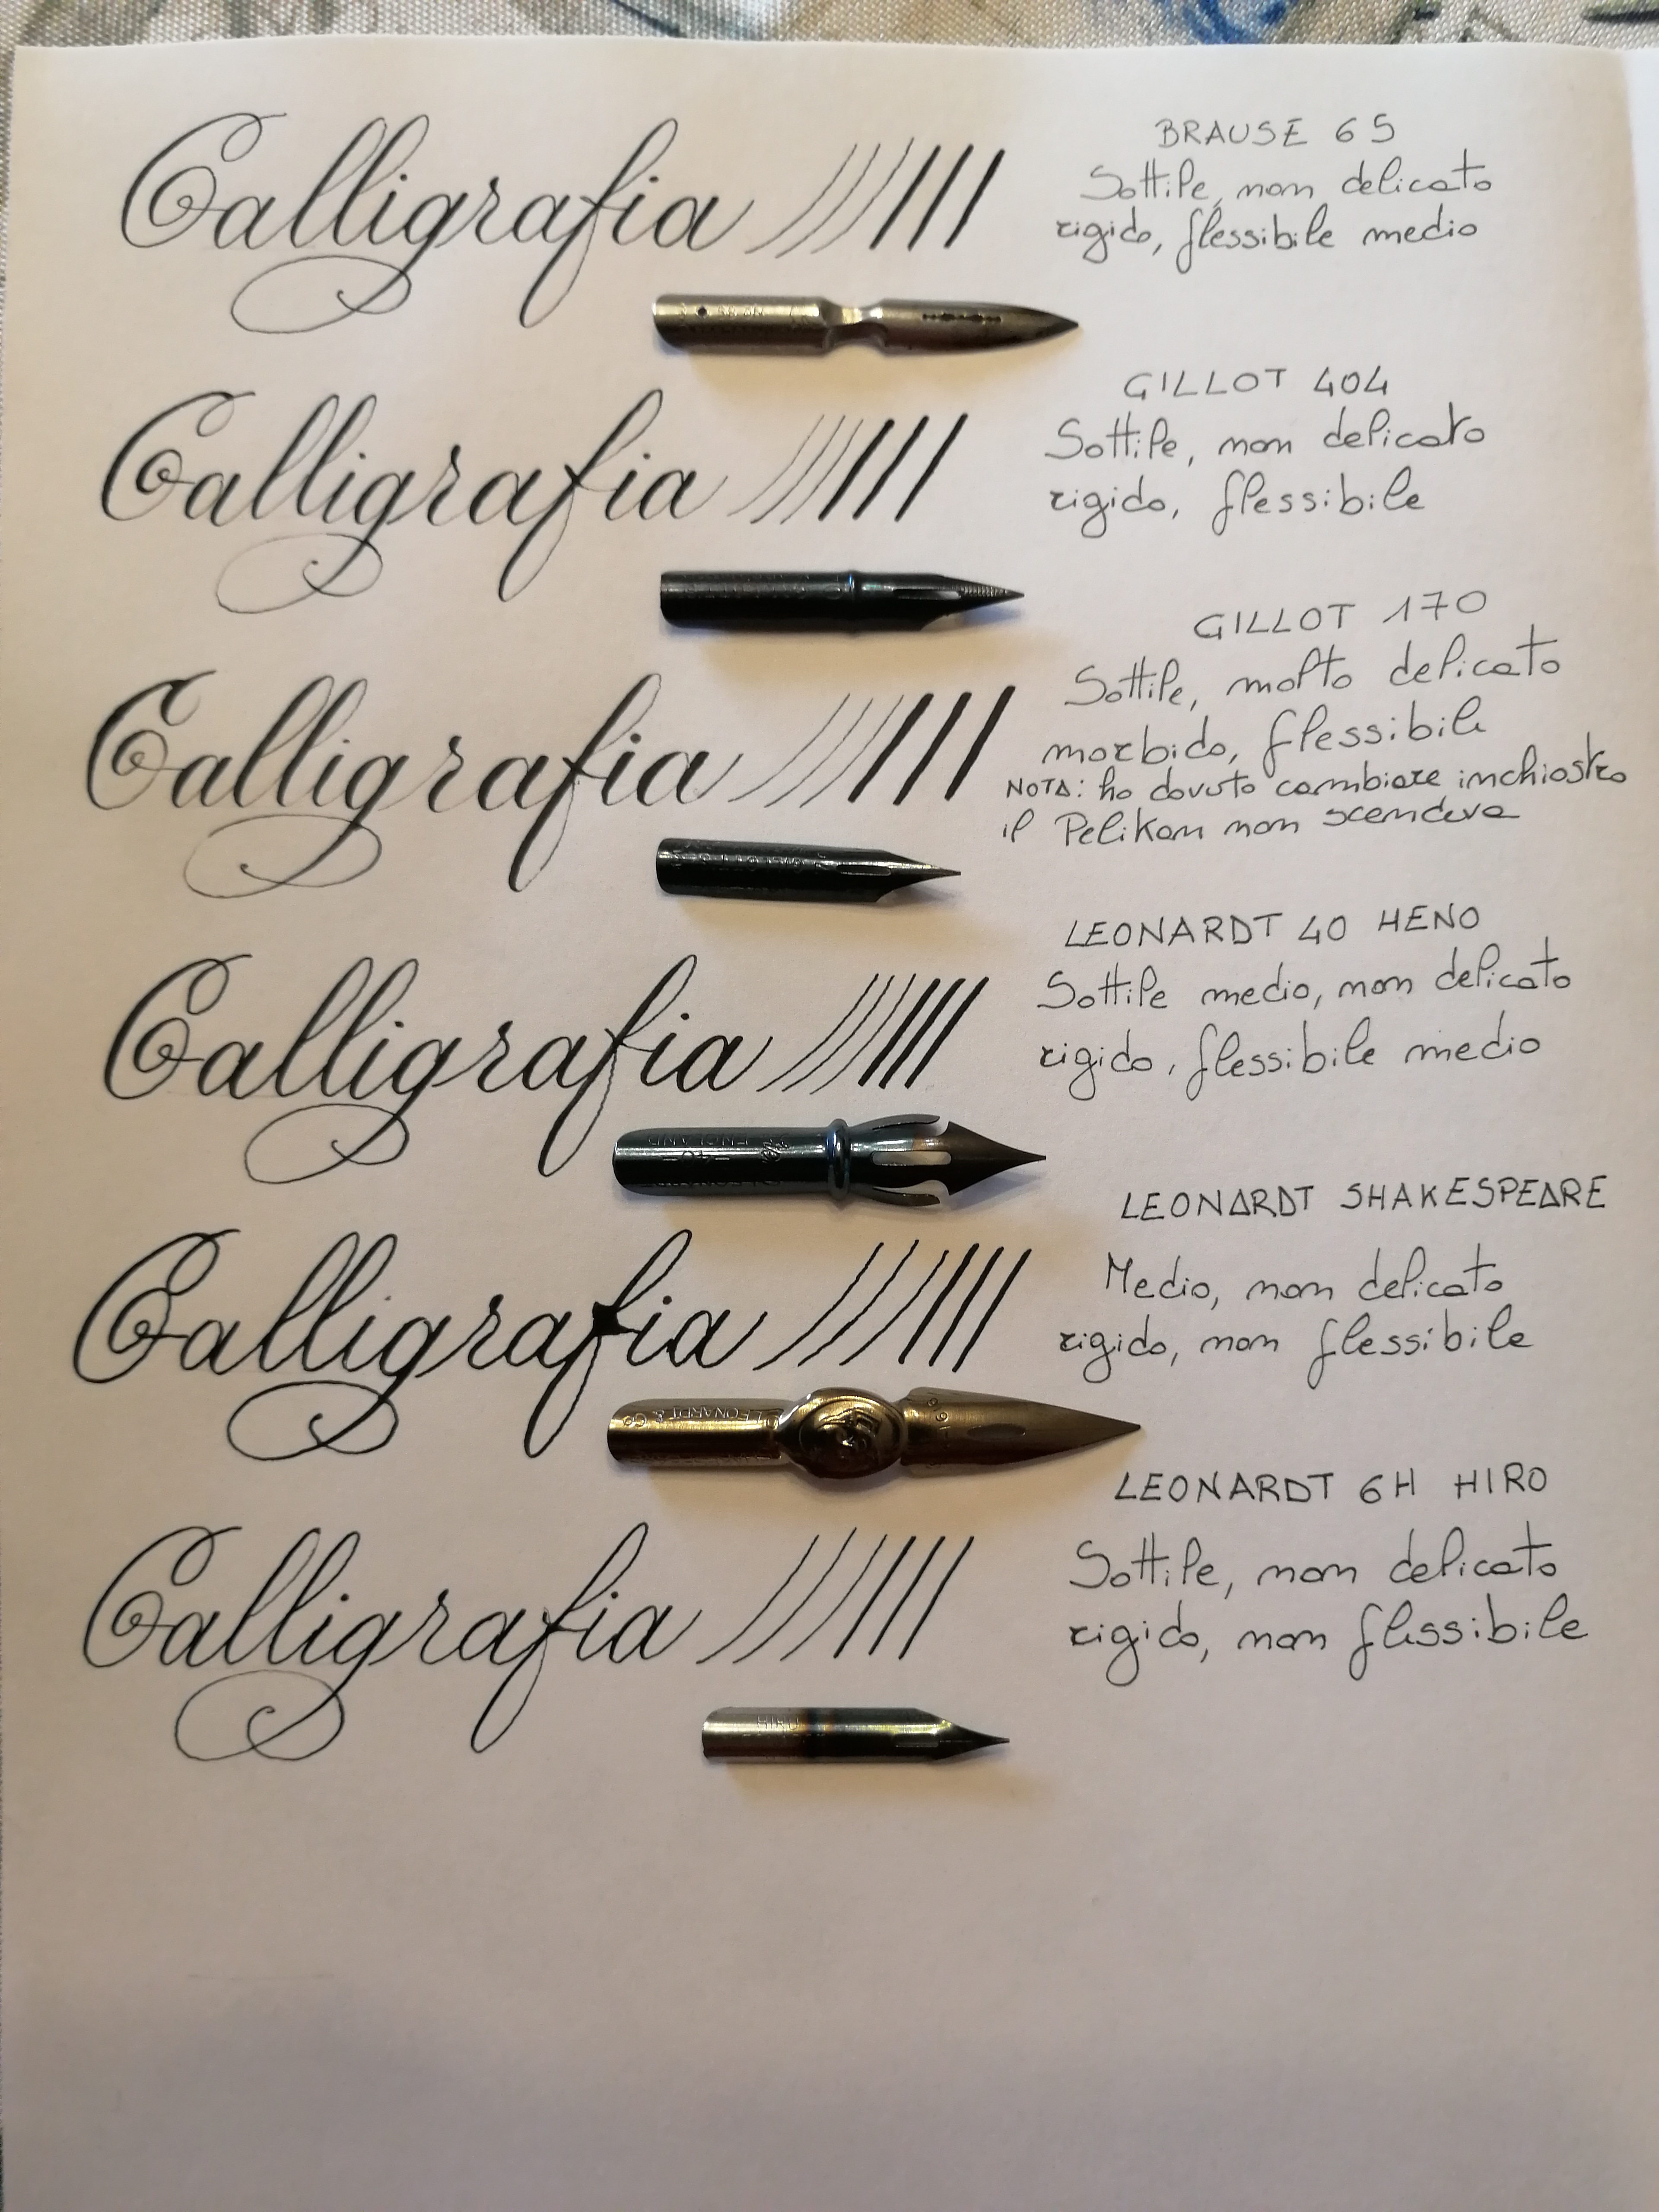 Calligrafia
BRAUSE 65
Sottile, non delicato
rigido, flessibile medio
Calligrafia
GILLOT 404
Sottile, non delicato
rigido, flessibile
Calligrafia
GILLOT 170
Sottile, molto delicato
morbido, flessibile
NOTA: ho dovuto cambiare inchiostro
il Pelikan non scendeva
Calligrafia
LEONARDT 40 HENO
Sottile medio, non delicato
rigido, flessibile medio
ENGLAND
40
Calligrafia
LEONARDT SHAKESPEARE
Medio, non delicato
rigido, non flessibile
LEONARDT & Co
Calligrafia
LEONARDT 6H HIRO
Sottile, non delicato
rigido, non flessibile
HIRO